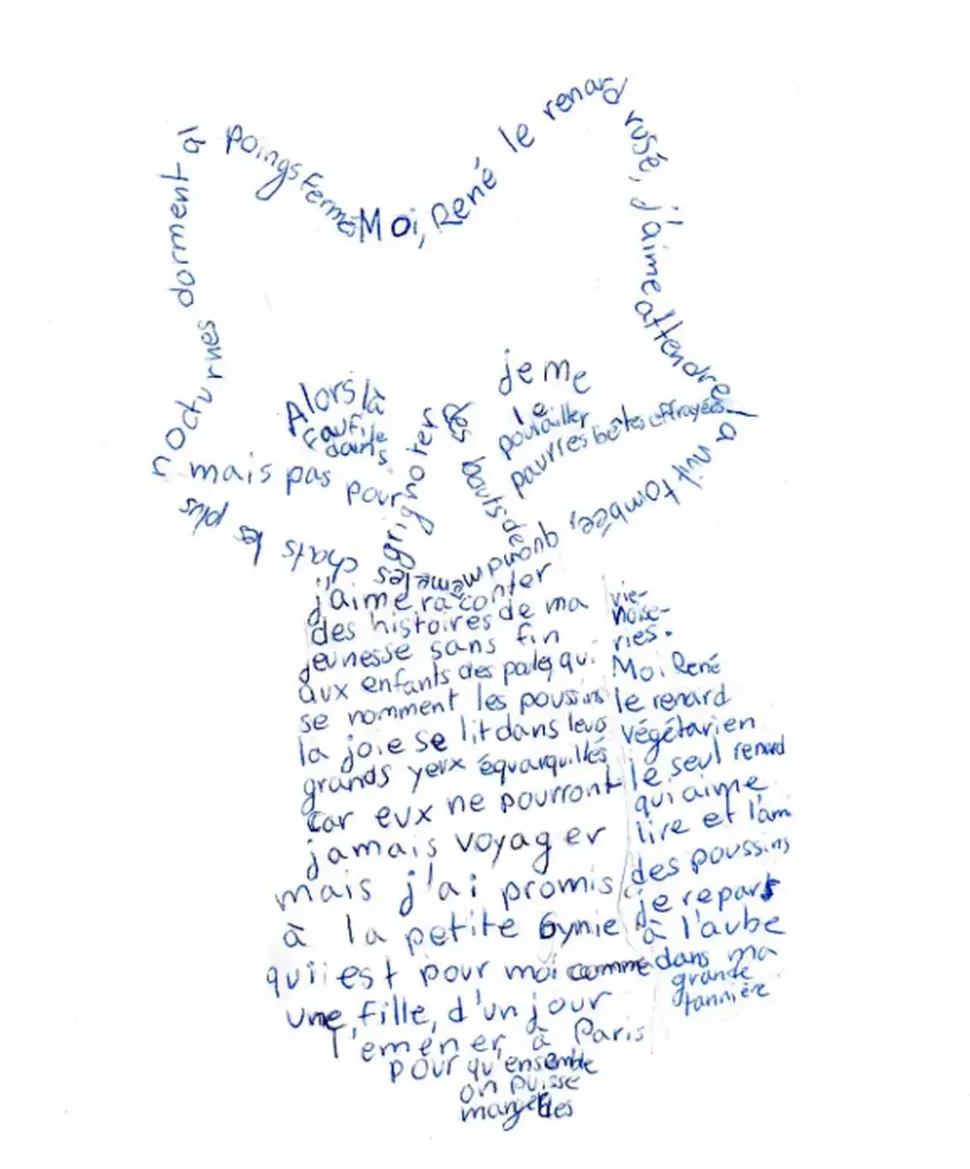 Moi, René le renard
rusé, j'aime attendre
la nuit tombée,
quand même les chats les plus
nocturnes dorment à
poings fermés
Alors là
je me
faufile
dans
le
poulailler
mais pas pour
grignoter
les bouts de
pauvres bêtes effrayées
j'aime raconter
des histoires de ma
jeunesse sans fin
aux enfants des poules qui
se nomment les poussins
la joie se lit dans leurs
grands yeux équarquillés
car eux ne pourront
jamais voyager
mais j'ai promis
à la petite Gynie
qui est pour moi comme
une fille, d'un jour
l'emener à Paris
pour qu'ensemble
on puisse
manger des
vie-
noise-
ries.
Moi René
le renard
végétarien
le seul renard
qui aime
lire et l'am
des poussins
je repars
à l'aube
dans ma
grande
tannière